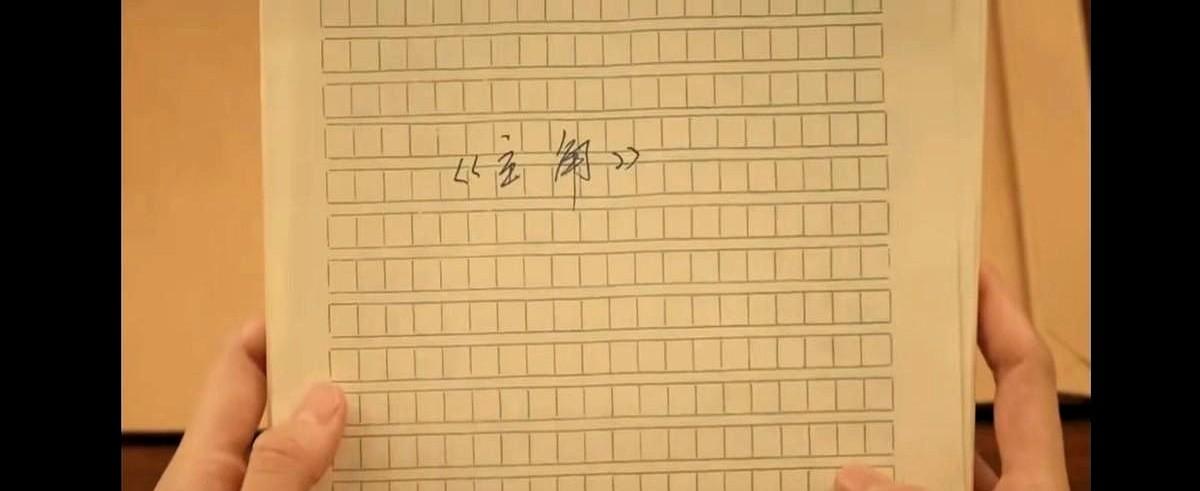 《主角》